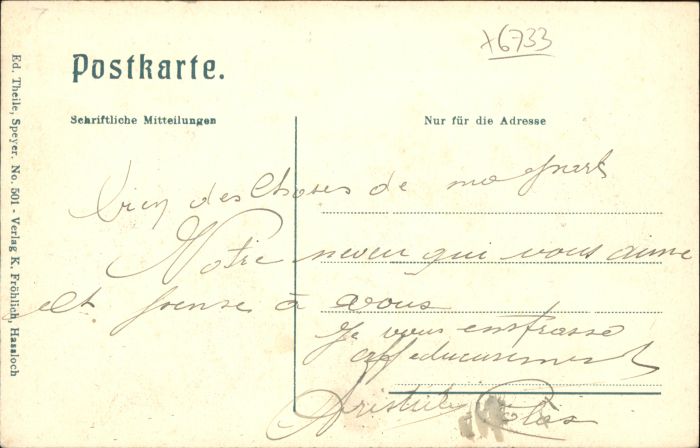 x6733
Postkarte.
Schriftliche Mitteilungen
Nur für die Adresse
bien des Choses de ma part
Votre neveu qui vous aime
et pense à vous
Je vous embrasse
affectueusement
Aristide Colas
Ed. Theile, Speyer. No. 501 - Verlag K. Fröhlich, Hassloch